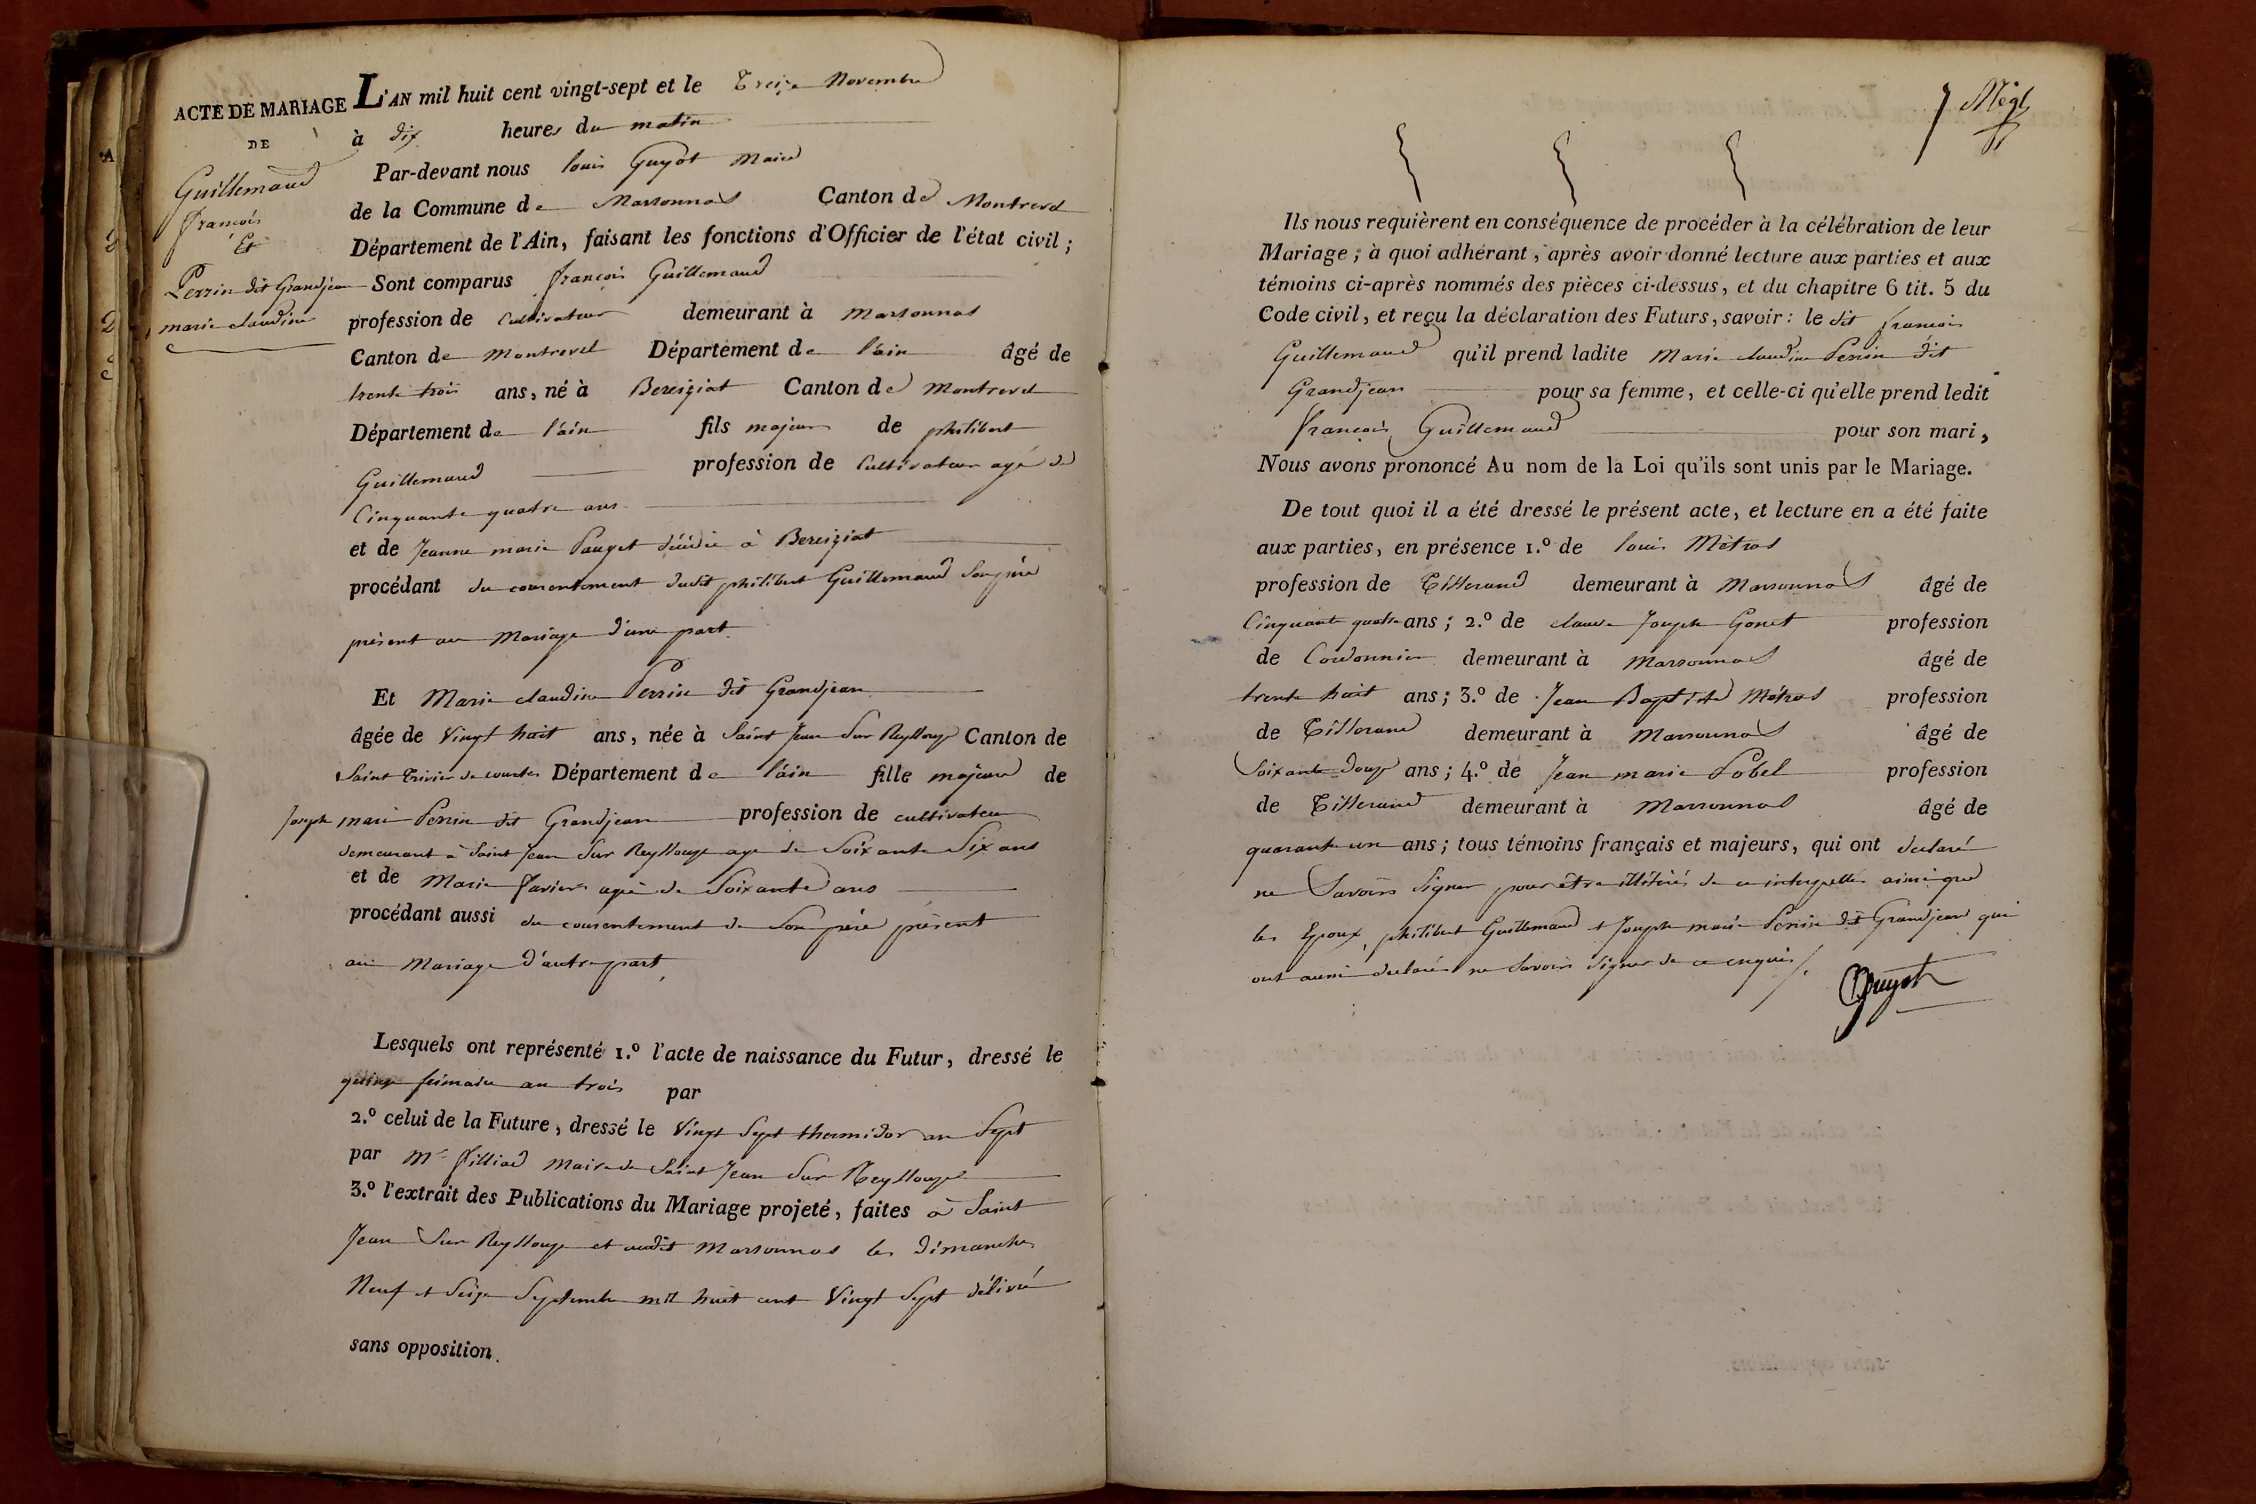 ACTE DE MARIAGE
DE
Guillemaud
françois
Et
Perrin dit Grandjean
marie claudine
L'AN mil huit cent vingt-sept et le Treize Novembre
à dix heures du matin
Par-devant nous louis Guyot Maire
de la Commune de Marsonnas Canton de Montrevel
Département de l'Ain, faisant les fonctions d'Officier de l'état civil ;
Sont comparus françois Guillemaud
profession de Cultivateur demeurant à Marsonnas
Canton de Montrevel Département de l'ain âgé de
trente trois ans, né à Bereiziat Canton de Montrevel
Département de l'ain fils majeur de philibert
Guillemaud profession de Cultivateur agé de
Cinquante quatre ans
et de Jeanne marie Pauget décédée à Bereiziat
procédant du consentement dudit philibert Guillemaud son père
présent au Mariage d'une part
Et Marie claudine Perrin dit Grandjean
âgée de Vingt huit ans, née à Saint Jean Sur Reyssouze Canton de
Saint Trivier de courtes Département de l'ain fille majeure de
Joseph marie Perrin dit Grandjean profession de cultivateur
demeurant à Saint Jean Sur Reyssouze agé de Soixante Six ans
et de Marie favier agée de Soixante ans
procédant aussi du consentement de Son père présent
au Mariage d'autre part
Lesquels ont représenté 1.º l'acte de naissance du Futur, dressé le
quinze frimaire an trois par
2.º celui de la Future, dressé le Vingt Sept thermidor an Sept
par Mr filliod Maire de Saint Jean Sur Reyssouze
3.º l'extrait des Publications du Mariage projeté, faites à Saint
Jean Sur Reyssouze et audit Marsonnas les dimanches
Neuf et Seize Septembre mil huit cent Vingt Sept délivré
sans opposition.
7
Ils nous requièrent en conséquence de procéder à la célébration de leur
Mariage ; à quoi adhérant, après avoir donné lecture aux parties et aux
témoins ci-après nommés des pièces ci-dessus, et du chapitre 6 tit. 5 du
Code civil, et reçu la déclaration des Futurs, savoir : le dit françois
Guillemaud qu'il prend ladite Marie claudine Perrin dit
Grandjean pour sa femme, et celle-ci qu'elle prend ledit
françois Guillemaud pour son mari,
Nous avons prononcé Au nom de la Loi qu'ils sont unis par le Mariage.
De tout quoi il a été dressé le présent acte, et lecture en a été faite
aux parties, en présence 1.º de louis Mètras
profession de Tisserand demeurant à Marsonnas âgé de
Cinquante quatre ans ; 2.º de claude Joseph Gonet profession
de Cordonnier demeurant à Marsonnas âgé de
trente huit ans ; 3.º de Jean Baptiste Mètras profession
de Tisserand demeurant à Marsonnas âgé de
Soixante Douze ans ; 4.º de Jean marie Pobel profession
de Tisserand demeurant à Marsonnas âgé de
quarante un ans ; tous témoins français et majeurs, qui ont declaré
ne Savoir Signer pour être illitérés de ce interpellés ainsi que
les Epoux, philibert Guillemaud et Joseph marie Perrin dit Grandjean qui
ont aussi declaré ne Savoir Signer de ce enquis.
Guyot